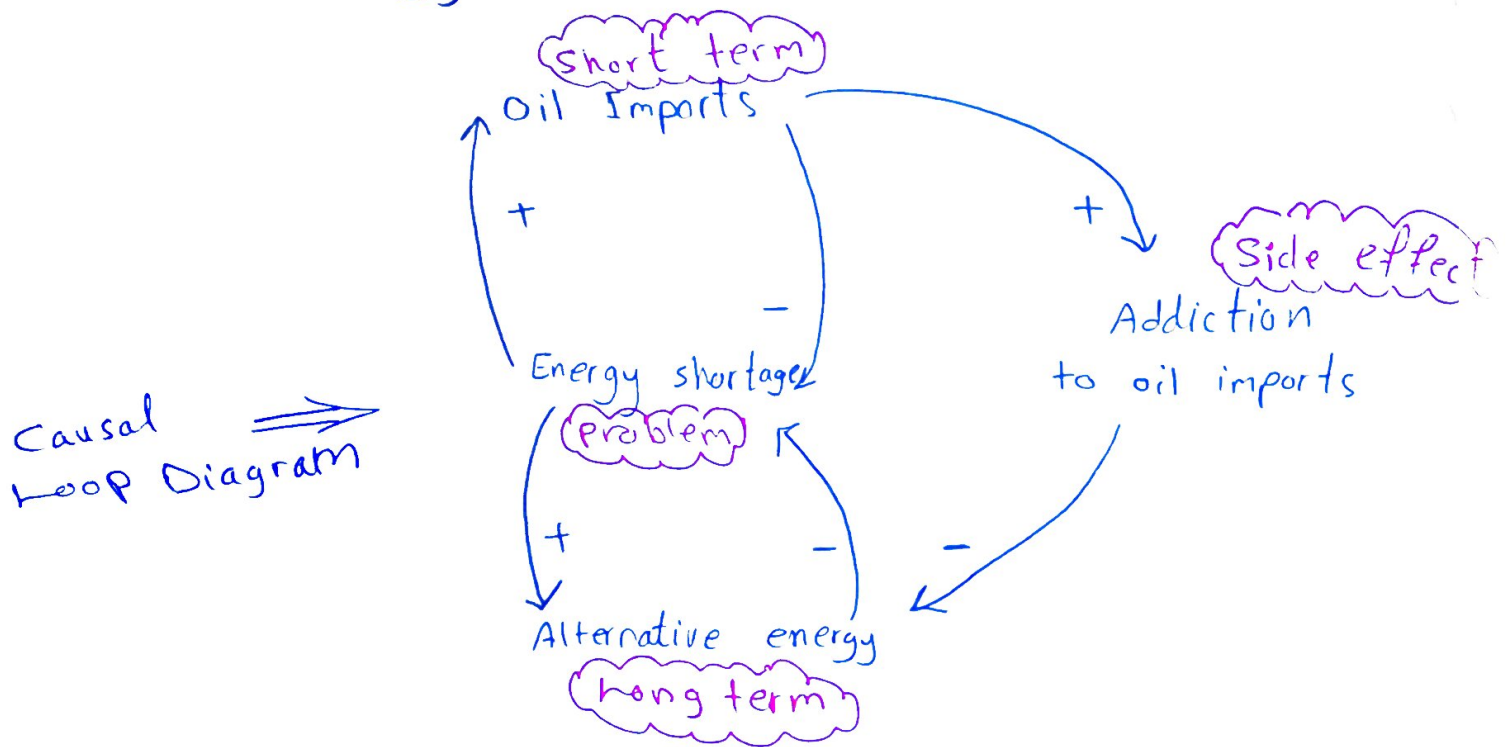 Short term
Oil Imports
+
+
Side effect
-
Addiction
to oil imports
Energy shortage
Problem
Causal
Loop Diagram
+
-
-
Alternative energy
Long term